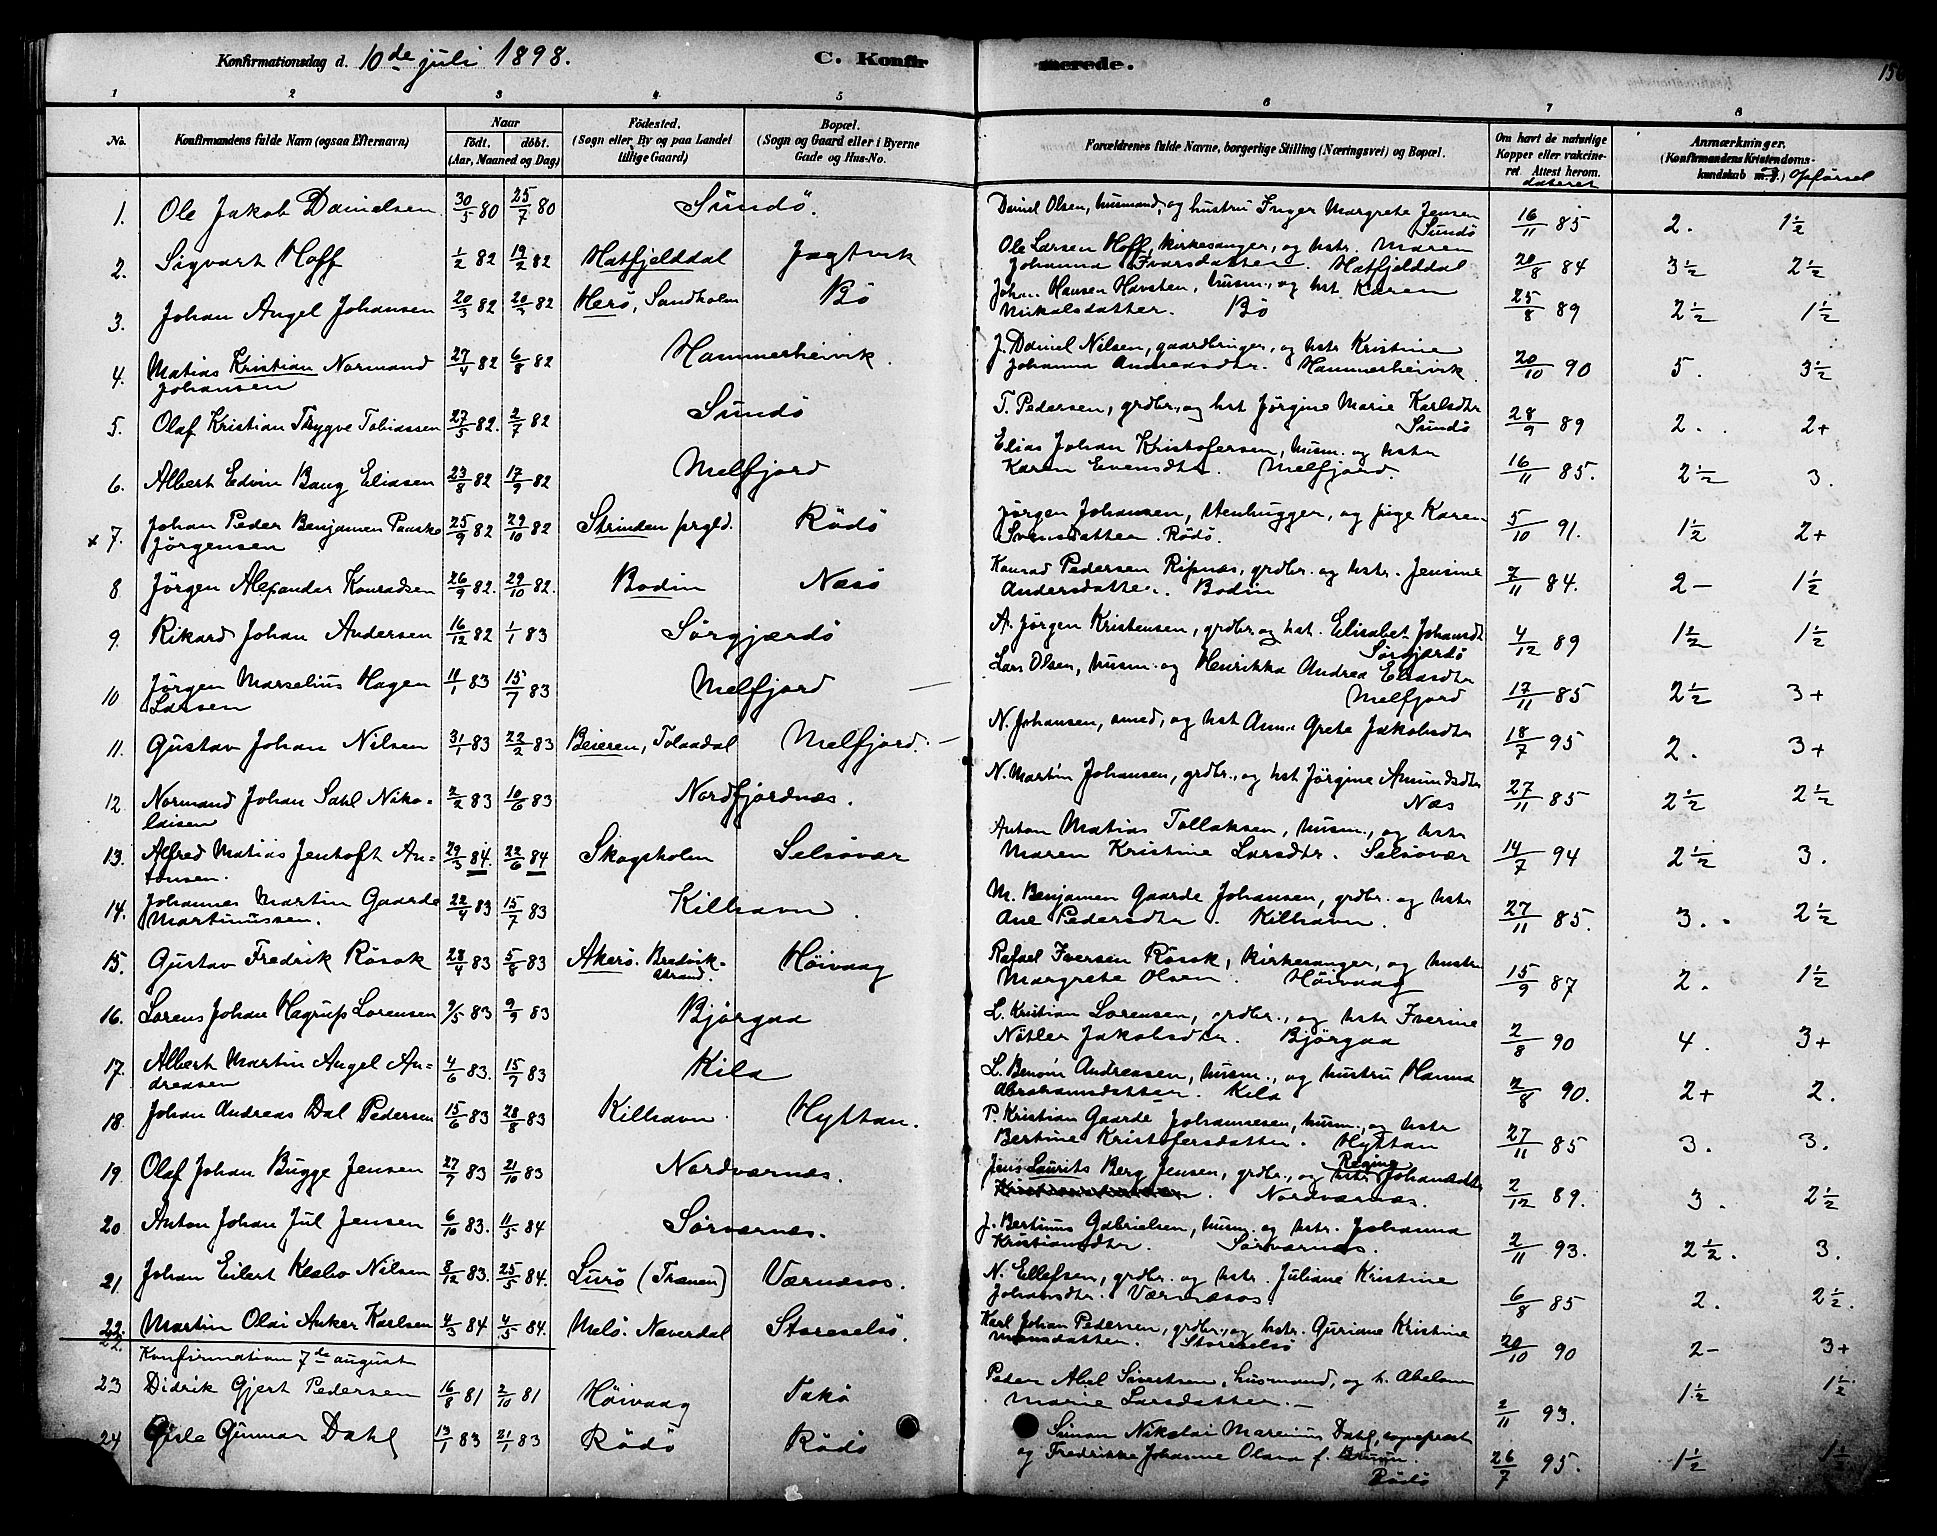 Konfirmationsdag d. 10de juli 1898.
C. Konfirmerede.
156
1 2 3 4 5 6 7 8
No.
Konfirmandens fulde Navn (ogsaa Efternavn)
Naar
født. døbt.
(Aar, Maaned og Dag)
Fødested.
(Sogn eller By og paa Landet
tillige Gaard)
Bopæl.
(Sogn og Gaard eller i Byerne
Gade og Hus-No.
Forældrenes fulde Navne, borgerlige Stilling (Næringsvei) og Bopæl.
Om havt de naturlige
Kopper eller vakcine-
ret. Attest herom.
dateret
Anmærkninger.
(Konfirmandens Kristendoms-
kundskab m. .) Opførsel
1. Ole Jakob Danielsen 30/5 80 25/7 80 Sundö. Daniel Olsen, husmand, og hustru Inger Margrete Jensen 16/11 85 2. 1½
Sundö
2. Sigvart Hoff 1/2 82 19/2 82 Hatfjelddal Jagtvik Ole Larsen Hoff, kirkesanger, og hstr. Maren
Johanna Ivarsdatter. Hatfjelddal 20/8 84 3½ 2½
3. Johan Angel Johansen 20/3 82 82 Herö, Sandholm Bö Johan Hansen Havsten, husm., og hst. Karen
Nikolsdatter. Bö 25/8 89 2½ 1½
4. Matias Kristian Normand 27/4 82 6/8 82 Hammerheivik. J. Daniel Nilsen, gaardbruger, og hstr Kristine
Johansen Johanna Andreasdtr. Hammerheivik 20/10 90 5. 3½
5. Olaf Kristian Trygve Tobiassen 27/5 82. 2/7 82 Sundö T. Pedersen, grdbr., og hst Jörgine Marie Karlsdtr 28/9 89 2. 2+
Sundö
6. Albert Edvin Bang Eliasen 23/8 82 17/9 82 Melfjord Elias Johan Kristofersen, husm. og hstr
Karen Evensdtr. Melfjord. 16/11 85. 2½ 3.
x 7. Johan Peder Benjamin Paaske 25/9 82 29/10 82 Strinden prgld. Rödö Jörgen Johansen, stenhugger, og pige Karen
Jörgensen Svensdatter. Rödö. 5/10 91. 1½ 2+
8 Jörgen Alexander Konradsen 26/9 82. 29/10 82. Bodin Næsö Konrad Pedersen Ripnæs, grdbr. og hstr. Jensine
Andersdatter. Bodin 7/11 84. 2- 1½
9. Rikard Johan Andersen 16/12 82 1/1 83 Sörgjærdö A. Jörgen Kristensen, grdbr. og hst. Elisabet Johansdt 4/12 89 1½ 1½
Sörgjærdö
10 Jörgen Marselius Hagen 11/1 83 15/7 83 Melfjord Lars Olsen, husm. og Henrikka Andrea Eliasdtr
Larsen Melfjord 17/11 85 2½ 3+
11. Gustav Johan Nilsen 31/1 83 22/2 83 Beieren, Tolaadal Melfjord. N. Johansen, smed, og hst Anne Grete Jakobsdtr 18/7 95 2. 3+
12. Normand Johan Dahl Niko- 2/2 83 10/6 83 Nordfjordnæs. N. Martin Johansen, grdbr., og hst Jörgine Amundsdtr
laisen Næs 27/11 85 2½ 2½
13. Alfred Matias Jentoft An- 29/3 84. 22/6 84 Skogsholm Selsövær Anton Matias Tollaksen, husm., og hstr
tonsen. Maren Kristine Larsdtr. Selsövær 14/7 94 2½ 3.
14. Johannes Martin Gaarde 22/4 83 15/7 83 Kilhavn. M. Benjamin Gaarde Johansen, grdbr. og hstr
Martinussen. Ane Pedersdtr. Kilhavn. 27/11 85. 3. 2½
15. Gustav Fredrik Rösok 28/4 83 5/8 83 Akerö. Bredvik- Höivaag Rafael Iversen Rösok, kirkesanger, og hustr
strand. Margrete Olsen. Höivaag 15/9 87 2. 1½
16. Lorens Johan Hagrup Lorensen 9/5 83 9/9 83 Bjørgaa L. Kristian Lorensen, grdbr., og hstr Iverine
Jakobsdtr. Bjørgaa 2/8 90 4. 3+
17. Albert Martin Angel An- 4/6 83. 15/7 83 Kila L. Benoni Andreasen, husm., og hustru Hanna
dreasen Abrahamsdatter. Kila 2/8 90. 2+ 2.
18. Johan Andreas Dal Pedersen 15/6 83 28/8 83 Kilhavn. Hyttan. P. Kristian Gaarde Johannesen, husm., og hstr
Bertine Kristofersdatter. Hyttan 27/11 85 3. 3.
19. Olaf Johan Bugge Jensen 27/7 83 21/10 83 Nordværnæs. Jens Laurits Berg Jensen, grdbr., og hstr. Regine Johansdtr
Nordværnæs. 2/12 89. 3. 2½
20. Anton Johan Jul Jensen 6/10 83. 11/5 84 Sörværnæs. J. Bertinus Gabrielsen, husm. og hstr. Johanna
Kristiansdtr. Sörværnæs. 2/11 93. 2½. 3.
21. Johan Eilert Klæbo Nilsen 8/12 83. 25/5 84. Lurö (Trænen) Værnæsos. N. Ellefsen, grdbr. og hstr. Juliane Kristine
Johansdtr. Værnæsos. 6/8 85 2. 2½.
22. Martin Olai Anker Karlsen 4/3 84 4/5 84. Melö. Næverdal Storeselsö. Karl Johan Pedersen, grdbr., og hstr. Guriane Kristine
Monsdatter. Storeselsö 20/10 90 2- 3+
Konfirmation 7de august
23 Didrik Gjert Pedersen 16/8 81 2/10 81 Höivaag Peder Abel Sivertsen, husmand, og h. Abelone
Marie Larsdatter. 2/11 93. 1½ 1½
24 Gisle Gunnar Dahl 13/1 83 21/1 83 Rödö Rödö Simon Nikolai Marenius Dahl, sogneprest
og Fredrikke Johanne Olava f. Bruun.
Rödö 26/7 95. 1½ 1½